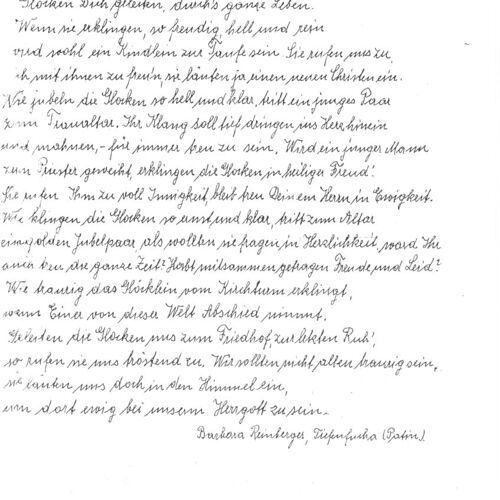 Glocken Dich geleiten, durch's ganze Leben.
Wenn sie erklingen, so freudig, hell und rein
wird wohl ein Kindlein zur Taufe sein. Sie rufen uns zu,
ich mit ihnen zu freu'n, sie läuten ja einen neuen Christen ein.
Wie jubeln die Glocken so hell und klar, tritt ein junges Paar
zum Traualtar. Ihr Klang soll tief dringen ins Herz hinein
und mahnen, - für immer treu zu sein. Wird ein junger Mann
zum Priester geweiht, erklingen die Glocken in heiliger Freud'.
Sie rufen Ihm zu voll Innigkeit, bleib treu Deinem Herrn in Ewigkeit.
Wie klingen die Glocken so ernst und klar, tritt zum Altar
ein golden Jubelpaar, als wollten sie fragen in Herzlichkeit, ward Ihr
auch treu die ganze Zeit? Habt mitsammen getragen Freude und Leid?
Wie traurig das Glöcklein vom Kirchturm erklingt,
wenn Einer von dieser Welt Abschied nimmt.
Geleiten die Glocken uns zum Friedhof, zur letzten Ruh',
so rufen sie uns tröstend zu. Wir sollten nicht allen traurig sein,
sie läuten uns doch in den Himmel ein,
um dort ewig bei unserm Herrgott zu sein.
Barbara Reinberger, Tiefenfucha (Patin).